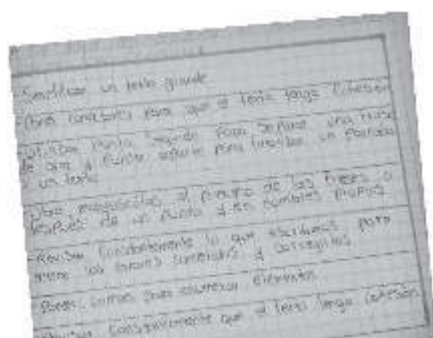 Simplificar un texto grande
Poner conectores para que el texto tenga cohesión
Utilizar punto seguido para separar una frase
de otra y punto aparte para
un texto
Usar mayúsculas al principio de las frases o
después de un punto y en nombres propios
Revisar constantemente lo que escribimos para
los errores cometidos y corregirlos
Poner comas para enumerar elementos
Revisar constantemente que el texto tenga cohesión